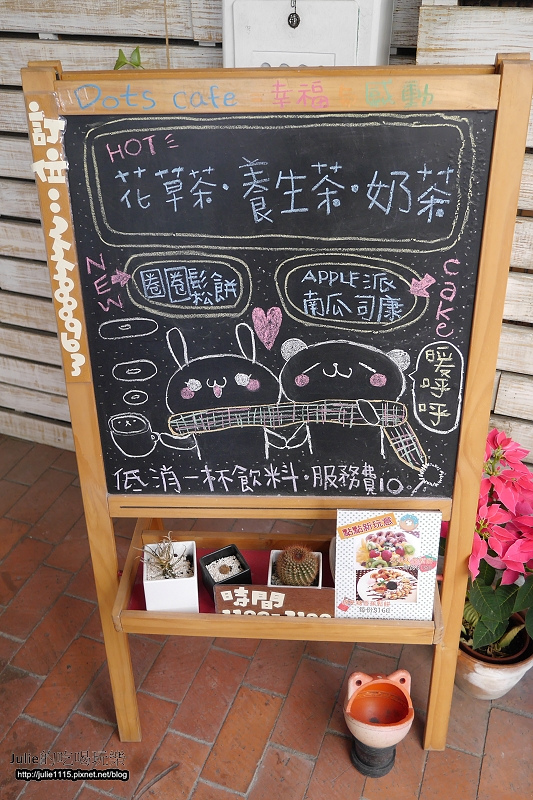 Dots cafe 幸福 啟動
HOT
花草茶·養生茶·奶茶
NEW
圈圈鬆餅
APPLE派
南瓜司康
cake
暖呼呼
低消一杯飲料·服務費10%
點點新玩意
每份$160
時間
Julie
http://julie1115.pixnet.net/blog